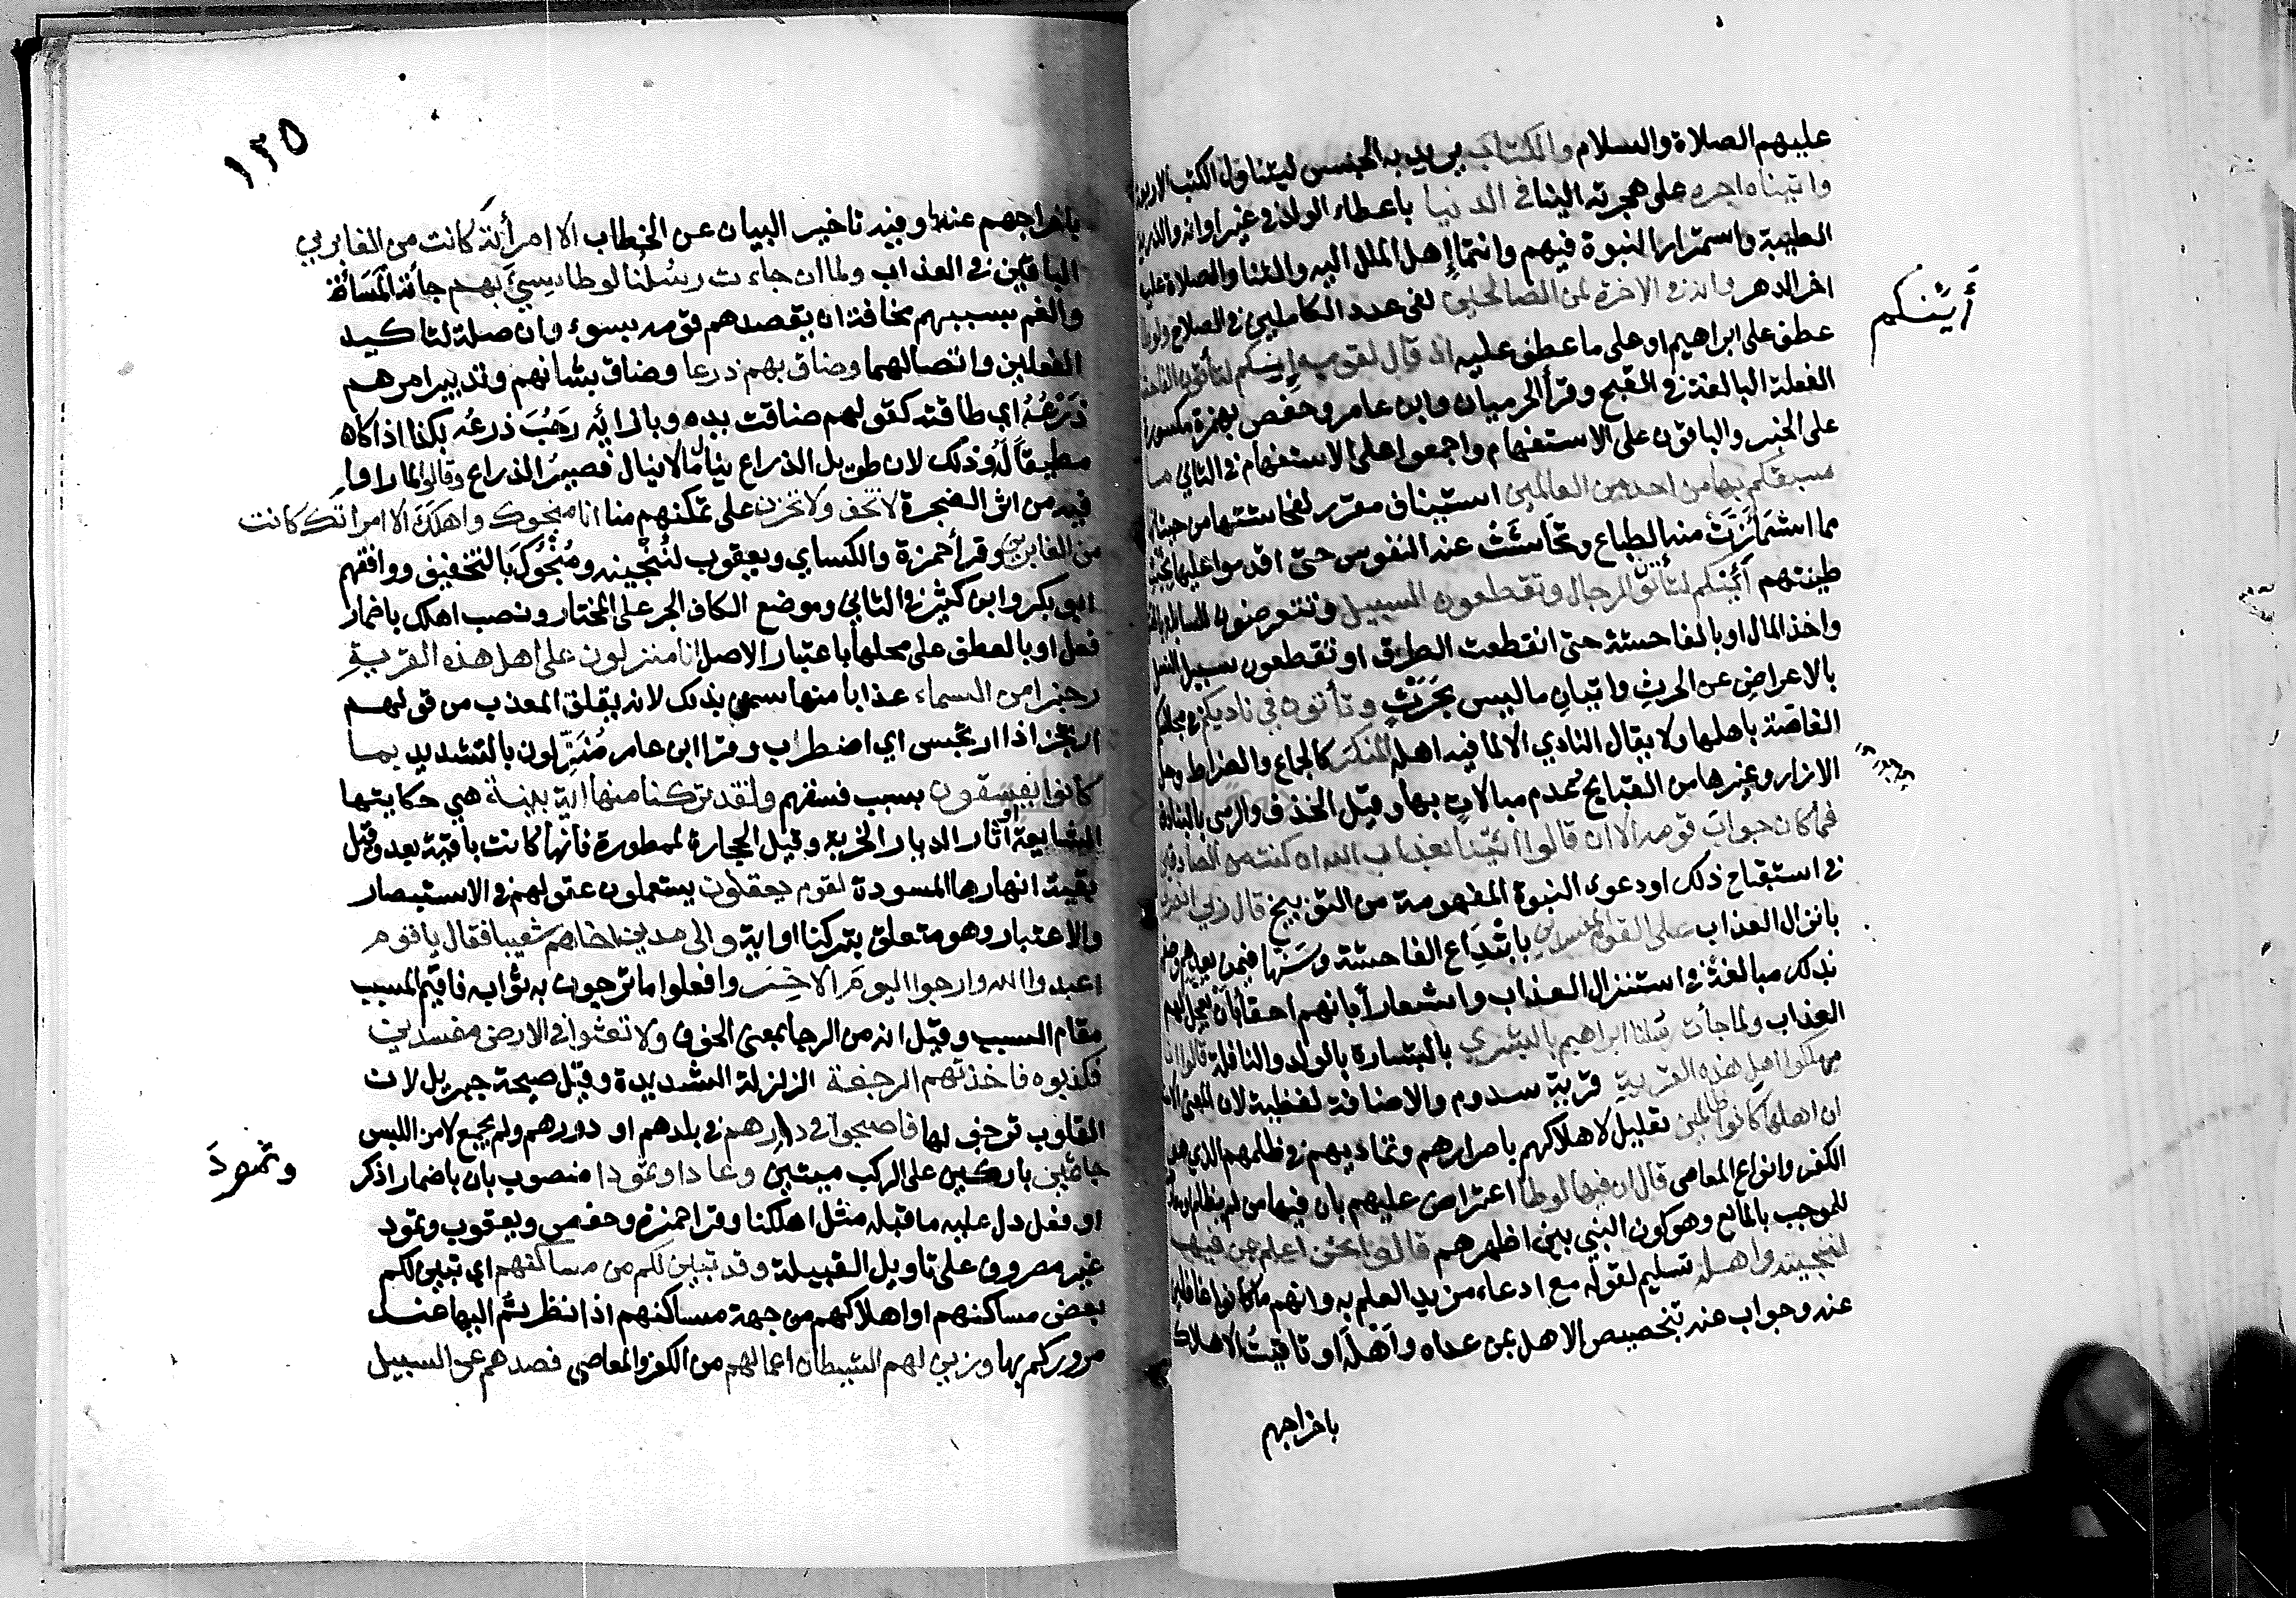 عليهم الصلاة والسلام والكتاب يريد به الجنس ليتناول الكتب الاربعة
واتيناه اجره على هجرته الينا في الدنيا باعطاء الولد في غير اوانه والذرية
الطيبة واستمرار النبوة فيهم وانتماإ اهل الملل اليه والثنا والصلاة عليه
اخر الدهر وانه في الاخرة لمن الصالحين لفي عدد الكاملين في الصلاح ولوطا
عطف على ابراهيم او على ما عطف عليه اذ قال لقومه إنكم لتأتون الفاحشة
أَئِنكم
الفعلة البالغة في القبح وقرأ الحرميان وابن عامر وحفص بهمزة مكسورة
على الخبر والباقون على الاستفهام واجمعوا على الاستفهام في الثاني ما
سبقكم بها من احد من العالمين استيناف مقرر لفحاشتها من حيث انها
مما اشمَأَزَّتْ منه الطباع وتحَاشَتْ عنه النفوس حتى اقدموا عليها لخبث
طينتهم أئنكم لتأتون الرجال وتقطعون السبيل وتتعرضون للسابلة بالقتل
واخذ المال او بالفاحشة حتى انقطعت الطرق او تقطعون سبيل النسل
بالاعراضِ عن الحرثِ واتيانِ ما ليس بحَرْثٍ وتأتون في ناديكم في مجالسكم
الغاصّة باهلها ولا يقال النادي الا لما فيه اهله المنكرَ كالجماع والضراط وحل
الازار وغيرها من القبايح عدم مبالاتٍ بها وقيل الخذف والرمي بالبنادق
فما كان جوابَ قومه الا ان قالوا ائتنا بعذاب الله ان كنت من الصادقين
في استقباح ذلك او دعوى النبوة المفهومة من التوبيخ قال رب انصرني
بانزال العذاب على القوم المفسدين بابْتِدَاعِ الفاحشة وسَنِّها فيمن بعدهم وصفهم
بذلك مبالغة في استنزال العذاب واشعاراً بانهم احقاءُ بان يعجل لهم
العذاب ولما جاءت رسلنا ابراهيم بالبشرى بالبشارة بالولد والنافلة قالوا انا
مهلكوا اهل هذه القرية قرية سدوم والاضافة لفظية لان المعنى
ان اهلها كانوا ظالمين تعليل لاهلاكهم باصرارهم وتماديهم في ظلمهم الذي هو
الكفر وانواع المعاصي قال ان فيها لوطا اعتراض عليهم بان فيها من لم يظلم او معارضة
للموجب بالمانع وهو كون النبي بين اظهرهم قالوا نحن اعلم بمن فيها
لننجينه واهله تسليم لقوله مع ادعاء مزيد العلم به وانهم ما كانوا غافلين
عنه وجواب عنه بتخصيص الاهل بمن عداه وأهْلَه او تاقيت الاهلاك
باخراجهم
١٣٥
باخراجهم عنها وفيه تاخير البيان عن الخطاب الا امرأته كانت من الغابرين
الباقين في العذاب ولما ان جاءت رسُلُنا لوطا سيئَ بهم جاءَته المَسَاءَة
والغم بسببهم مخافة ان يقصدهم قومه بسوء وان صلة لتاكيد
الفعلين واتصالهما وضاق بهم ذرعا وضاق بشانهم وتدبير امرهم
ذَرْعُهُ اي طاقته كقولهم ضاقت يده وبازائه رَحُبَ ذرعُه بكذا اذا كان
مطيقاً لَهُ وذلك لان طويل الذراع ينال ما لا ينال قصيرُ الذراع وقالوا لما راوا
فيه من اثر الضجرة لا تخف ولا تحزن على تمكنهم منا انا منجوك واهلكَ الا امراتك كانت
من الغابرين وقرأ حمزة والكساي ويعقوب لنُنْجِينه ومُنْجُوكَ بالتخفيف ووافقهم
ابو بكر وابن كثير في الثاني وموضع الكاف الجر على المختار ونصب اهلك باضمار
فعل او بالعطف على محلها باعتبار الاصل انا منزلون على اهل هذه القريةِ
رجزا من السماء عذابا منها سمي بذلك لانه يقلق المعذب من قولهم
ارتجز اذا ارتجس اي اضطراب وقرا ابن عامر مُنَزِّلون بالتشديد بما
كانوا يفسقون بسبب فسقهم ولقد تركنا منها اية بينة هي حكايتها
الشايعة او آثار الديار الخربة وقيل الحجارة الممطورة فانها كانت باقية بعد وقيل
بقية انهارها المسودة لقوم يعقلون يستعملون عقولهم في الاستبصار
والاعتبار وهو متعلق بتركنا او اية والى مدين اخاهم شعيبا فقال يا قوم
اعبدوا الله وارجوا اليومَ الاخِرَ وافعلوا ما ترجون به ثوابه فاقيم المسبب
مقام السبب وقيل انه من الرجا بمعنى الخوف ولا تعثوا في الارض مفسدين
فكذبوه فاخذتهم الرجفة الزلزلة الشديدة وقيل صيحة جبريل لان
القلوب ترجف لها فاصبحوا في دارهم في بلدهم او دورهم ولم يجمع لامن اللبس
جاثمين باركين على الركب ميتين وعادا وثمودا منصوب بان باضمار اذكر
وثمودَ
او فعل دل عليه ما قبله مثل اهلكنا وقرا حمزة وحفص ويعقوب وثمود
غير مصروف على تاويل القبيلة وقد تبين لكم من مساكنهم اي تبين لكم
بعض مساكنهم او اهلاكهم من جهة مساكنهم اذا نظرتُم اليها عند
مروركم بها وزين لهم الشيطان اعمالهم من الكفر والمعاصي فصدهم عن السبيل